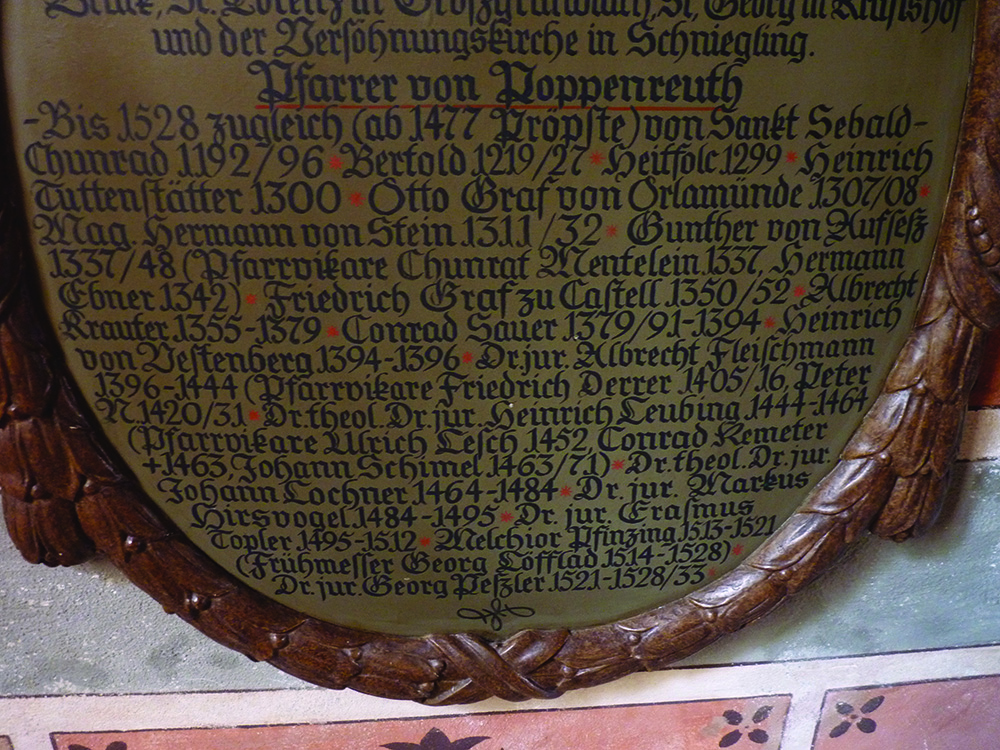 Bruck, St. Lorenz in Großgründlach, St. Georg in Kraftshof
und der Versöhnungskirche in Schniegling.
Pfarrer von Poppenreuth
-Bis 1528 zugleich (ab 1477 Pröpste) von Sankt Sebald-
Chunrad 1192/96 * Bertold 1219/27 * Heitfolc 1299 * Heinrich
Tuttenstätter 1300 * Otto Graf von Orlamünde 1307/08 *
Mag. Hermann von Stein 1311/32 * Gunther von Aufseß
1337/48 (Pfarrvikare Chunrat Mentelein 1337, Hermann
Ebner 1342) * Friedrich Graf zu Castell 1350/52 * Albrecht
Krauter 1355-1379 * Conrad Sauer 1379/91-1394 * Heinrich
von Vestenberg 1394-1396 * Dr. jur. Albrecht Fleischmann
1396-1444 (Pfarrvikare Friedrich Derrer 1405/16, Peter
N. 1420/31 * Dr. theol. Dr. jur. Heinrich Leubing 1444-1464
(Pfarrvikare Ulrich Lesch 1452, Conrad Kemeter
+1463, Johann Schimel 1463/71) * Dr. theol. Dr. jur.
Johann Lochner 1464-1484 * Dr. jur. Markus
Hirsvogel 1484-1495 * Dr. jur. Erasmus
Topler 1495-1512 * Melchior Pfinzing 1513-1521
(Frühmesser Georg Löfflad 1514-1528) *
Dr. jur. Georg Peßler 1521-1528/33 *